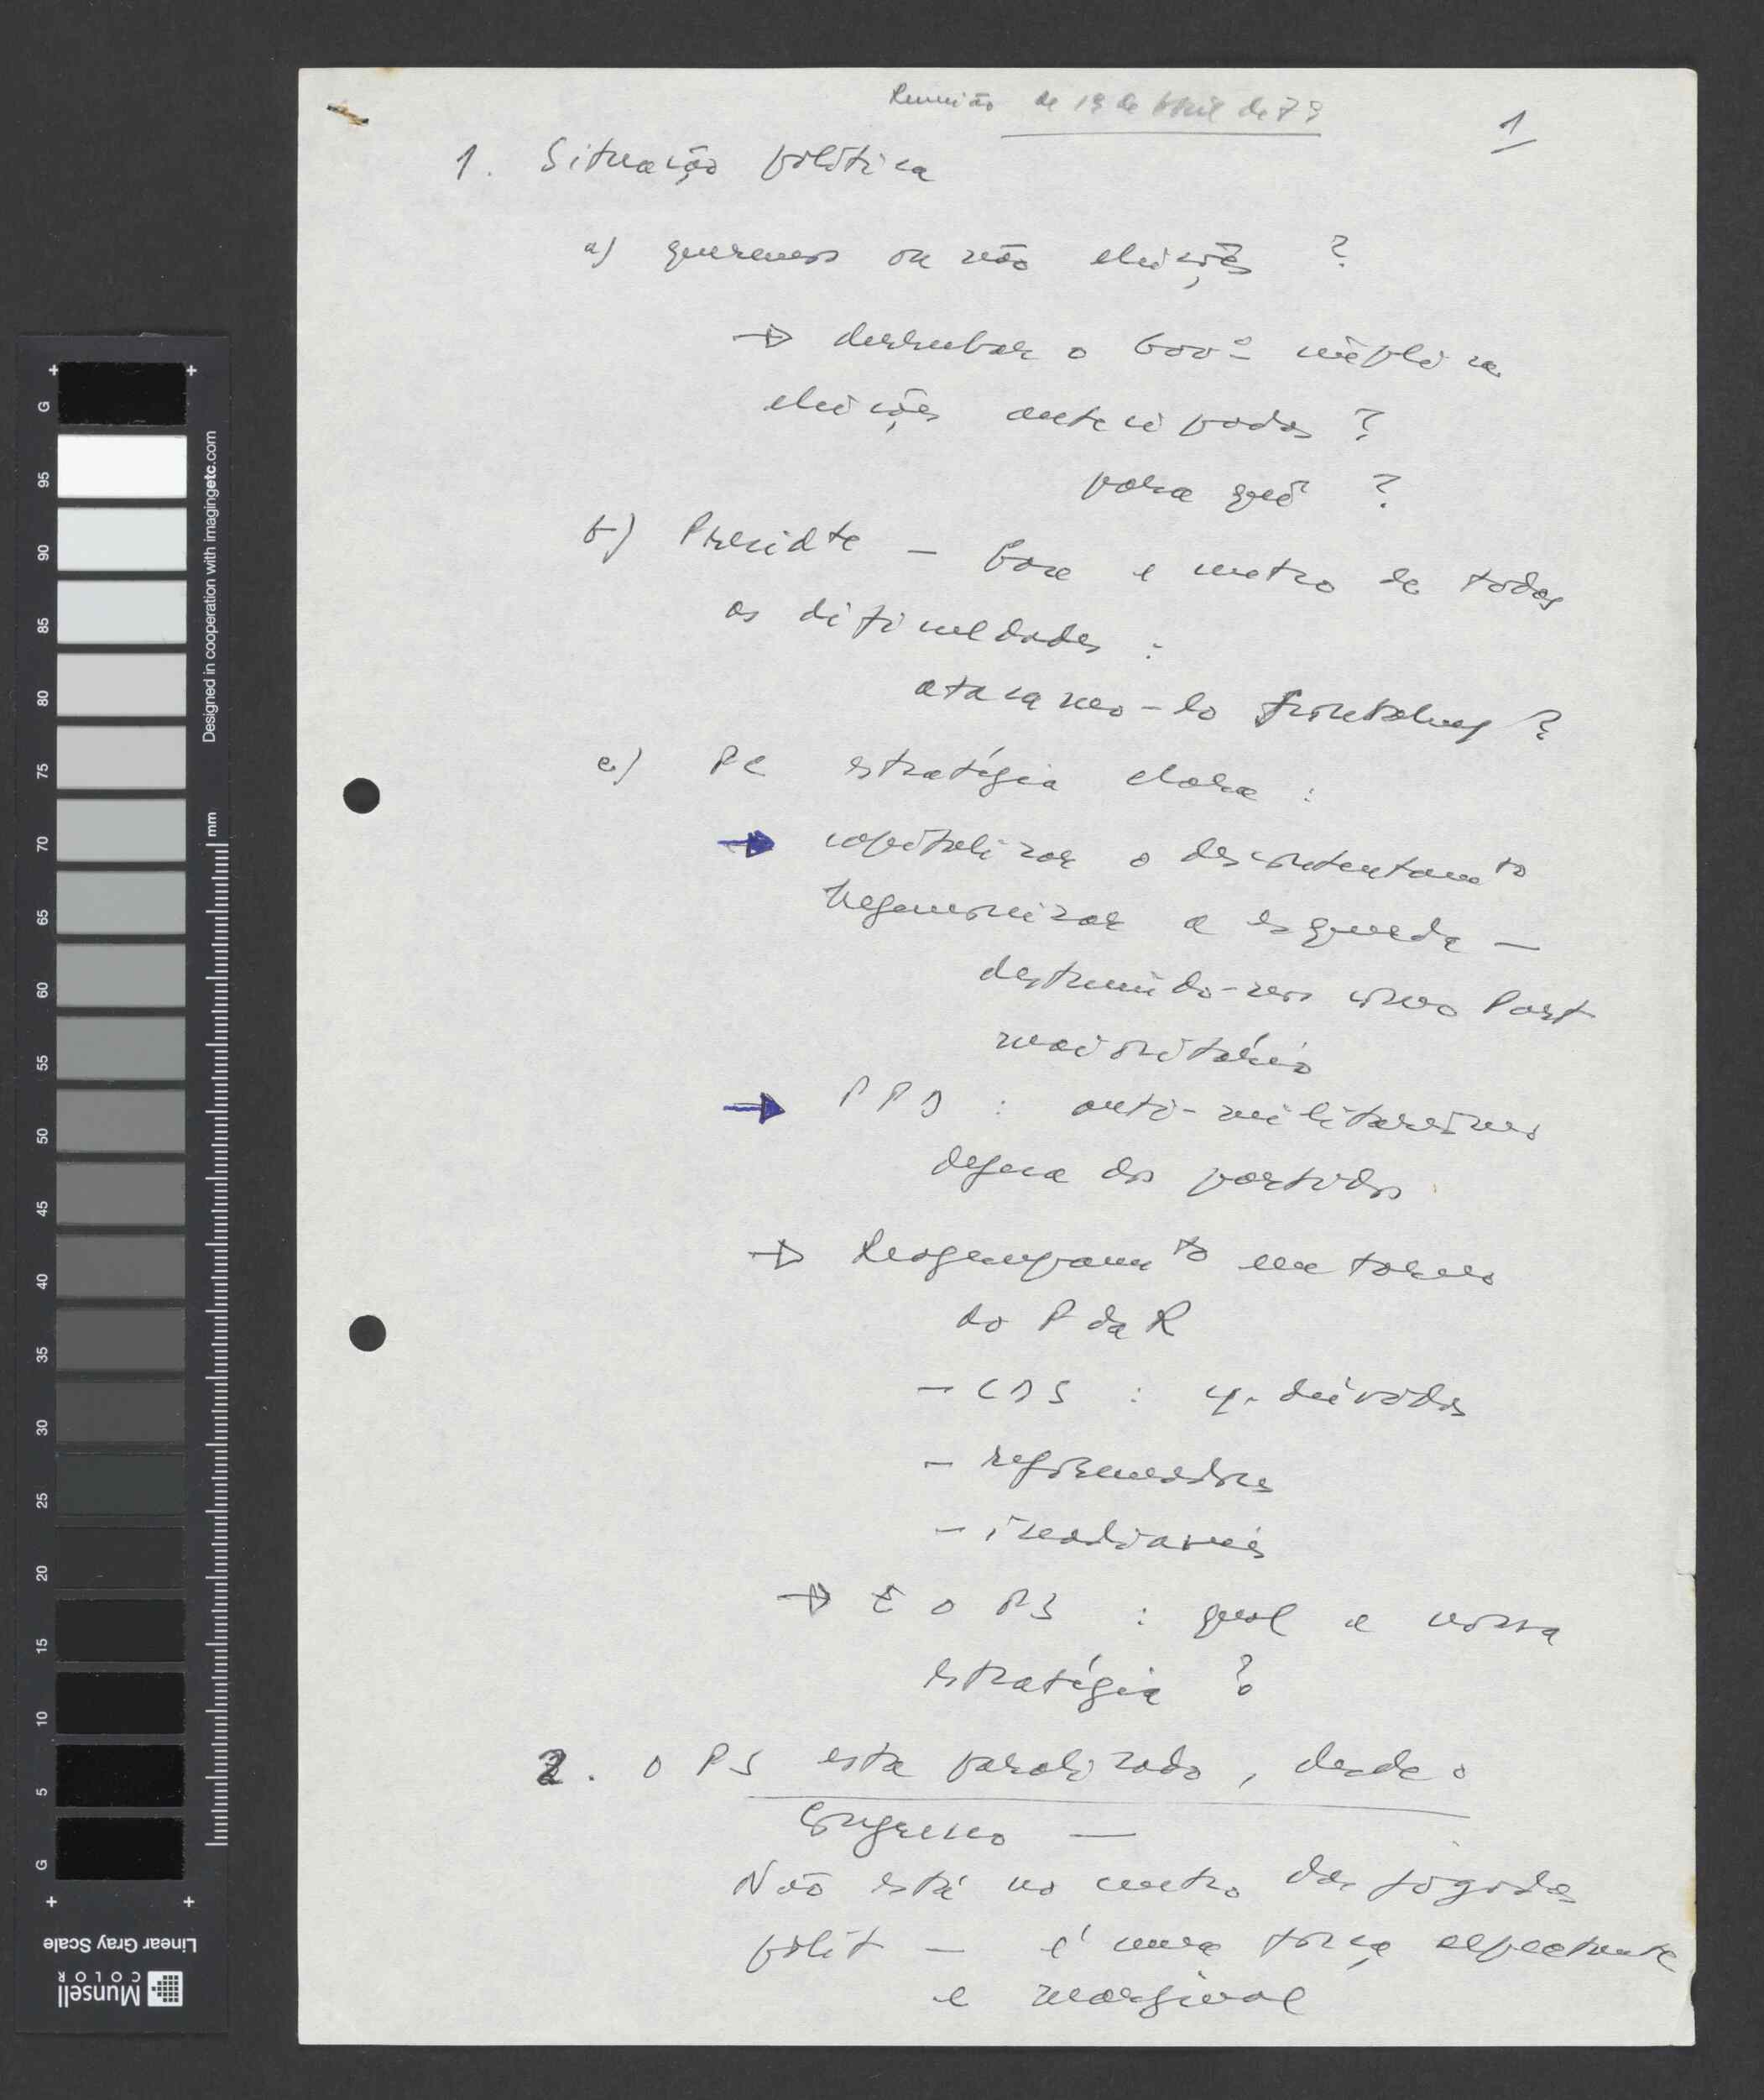 Reunião de 19 de Abril de 79
1
1. Situação política
a) queremos ou não eleições ?
→ derrubar o Govº implica
eleições antecipadas ?
para quê ?
b) Presidte — base e centro de todas
as dificuldades :
atacamo-lo frontalmente ?
c) PC estratégia clara :
→ capitalizar o descontentamto
hegemonizar a esquerda —
destruindo-nos como Part
maioritário
→ PPD : anti-militarismo
defesa dos partidos
→ Reagrupamto em torno
do P da R
— CDS : c/ dúvidas
— reformadores
— inadiáveis
→ E o PS : qual a nossa
estratégia ?
2. O PS esta paralizado, desde o
Congresso —
Não está no centro das jogadas
polít — é uma força expectante
e marginal
G 95 90 85 80 75 70 65 60 55 50 45 40 35 30 25 20 15 10 5 G
mm
Designed in cooperation with imagingetc.com
Linear Gray Scale
Munsell
COLOR